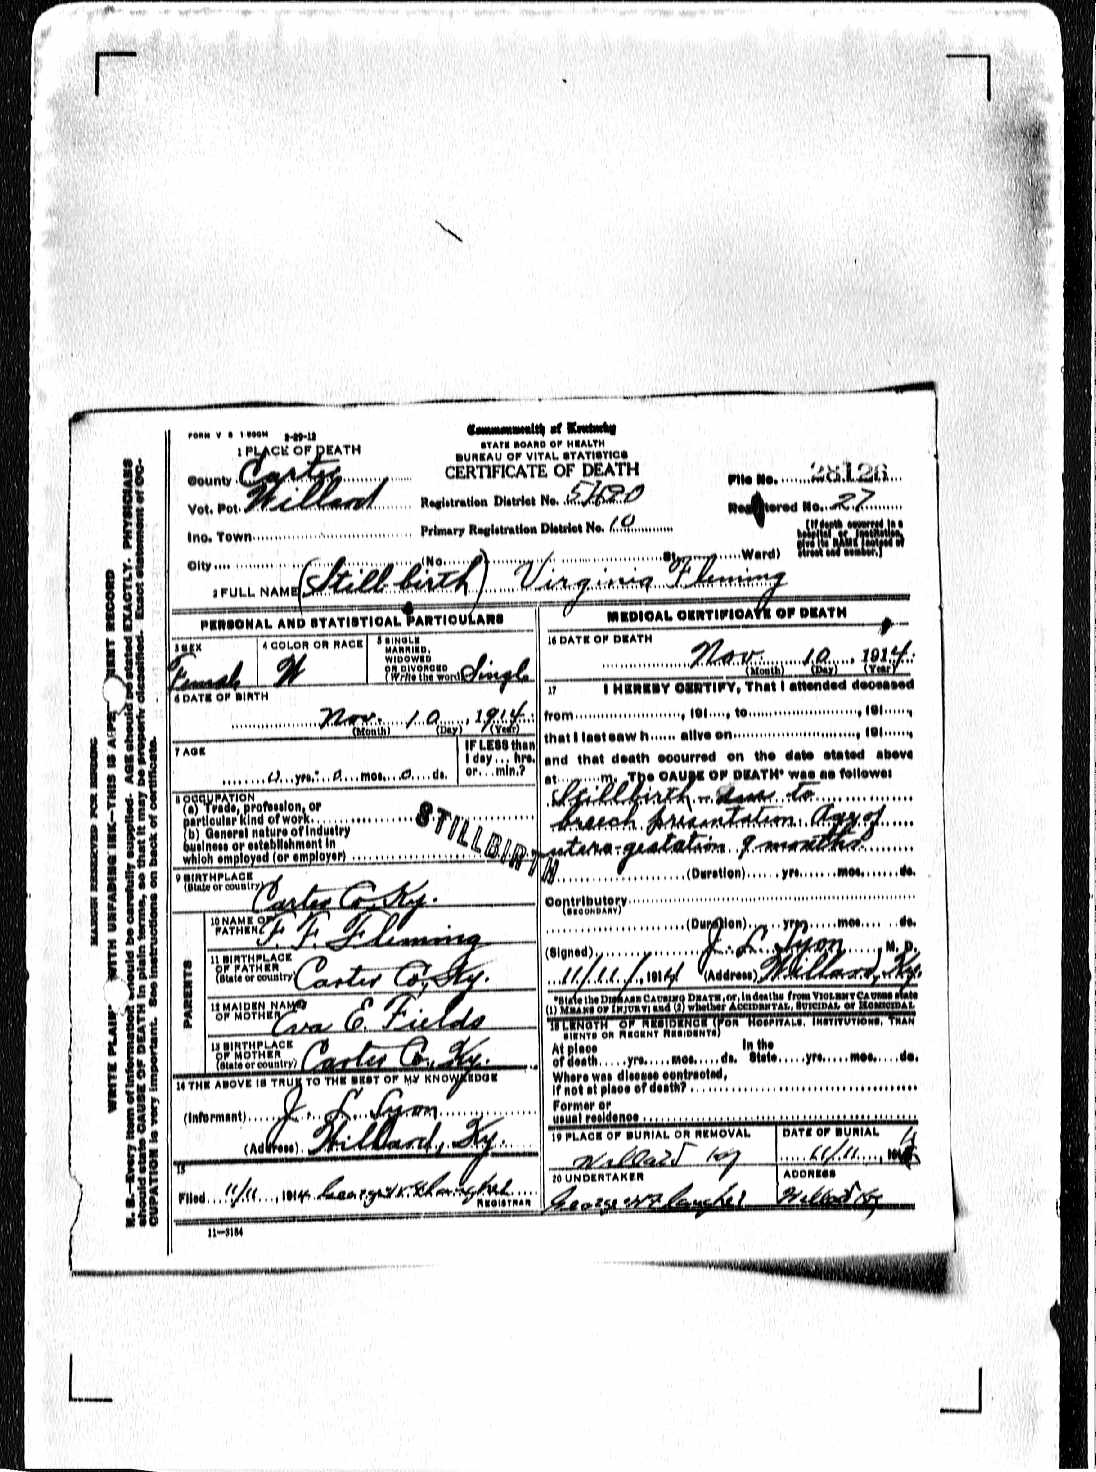 FORM V S 1-500M 8-29-12
Commonwealth of Kentucky
STATE BOARD OF HEALTH
BUREAU OF VITAL STATISTICS
CERTIFICATE OF DEATH
1 PLACE OF DEATH
County Carter
Vot. Pot. Willard
Inc. Town
City
Registration District No.
Primary Registration District No. 10
File No. 28126
Registered No. 27
(No. St. Ward)
[If death occurred in a hospital or institution, give its NAME instead of street and number.]
2 FULL NAME (Still birth) Virginia Fleming
PERSONAL AND STATISTICAL PARTICULARS
3 SEX
Female
4 COLOR OR RACE
W
5 SINGLE
MARRIED,
WIDOWED
OR DIVORCED
(Write the word) Single
6 DATE OF BIRTH
Nov. 10, 1914
(Month) (Day) (Year)
7 AGE
0 yrs. 0 mos. 0 ds.
IF LESS than
1 day ... hrs.
or ... min.?
8 OCCUPATION
(a) Trade, profession, or
particular kind of work
(b) General nature of industry
business or establishment in
which employed (or employer)
STILLBIRTH
9 BIRTHPLACE
(State or country) Carter Co, Ky.
PARENTS
10 NAME OF
FATHER F. F. Fleming
11 BIRTHPLACE
OF FATHER
(State or country) Carter Co, Ky.
12 MAIDEN NAME
OF MOTHER Eva E. Fields
13 BIRTHPLACE
OF MOTHER
(State or country) Carter Co, Ky.
14 THE ABOVE IS TRUE TO THE BEST OF MY KNOWLEDGE
(Informant) J. L. Lyon
(Address) Willard, Ky.
15
Filed 11/11, 1914 George
REGISTRAR
11-3184
MEDICAL CERTIFICATE OF DEATH
16 DATE OF DEATH
Nov 10, 1914
(Month) (Day) (Year)
17 I HEREBY CERTIFY, That I attended deceased
from , 191 , to , 191 ,
that I last saw h alive on , 191 ,
and that death occurred on the date stated above
at m. The CAUSE OF DEATH* was as follows:
Stillbirth - due to
breech presentation. Age of
utero-gestation 9 months
(Duration) yrs. mos. ds.
Contributory
(SECONDARY)
(Duration) yrs. mos. ds.
(Signed) J. L. Lyon, M. D.
11/11/, 1914 (Address) Willard, Ky.
*State the DISEASE CAUSING DEATH, or, in deaths from VIOLENT CAUSES state
(1) MEANS OF INJURY; and (2) whether ACCIDENTAL, SUICIDAL OR HOMICIDAL
18 LENGTH OF RESIDENCE (FOR HOSPITALS, INSTITUTIONS, TRANSIENTS OR RECENT RESIDENTS)
At place In the
of death yrs. mos. ds. State yrs. mos. ds.
Where was disease contracted,
if not at place of death?
Former or
usual residence
19 PLACE OF BURIAL OR REMOVAL
Willard Ky
DATE OF BURIAL
11/11, 191
20 UNDERTAKER
George
ADDRESS
Willard Ky
MARGIN RESERVED FOR BINDING
WRITE PLAINLY WITH UNFADING INK—THIS IS A PERMANENT RECORD
N. B.—Every item of information should be carefully supplied. AGE should be stated EXACTLY. PHYSICIANS
should state CAUSE OF DEATH in plain terms, so that it may be properly classified. Exact statement of OC-
CUPATION is very important. See instructions on back of certificate.